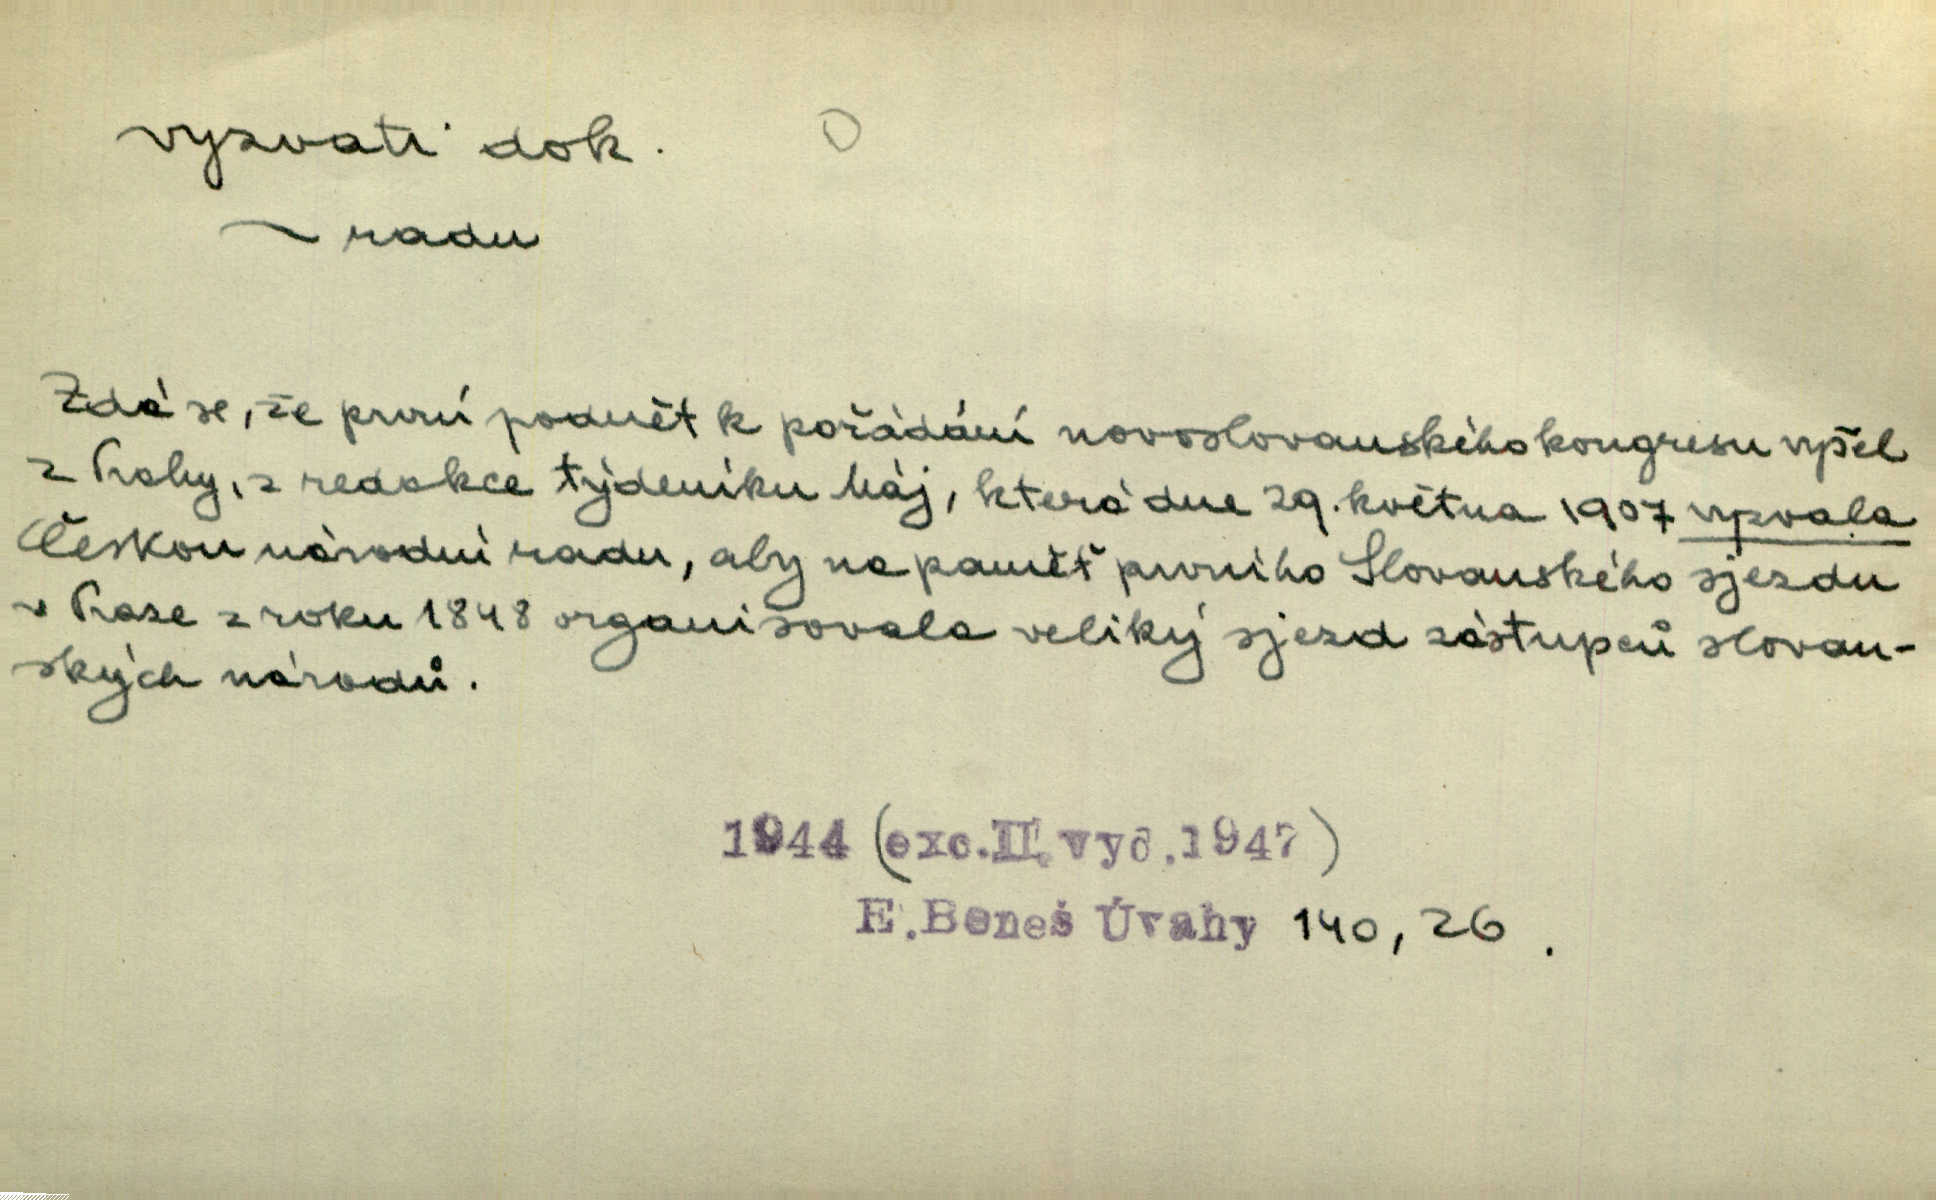 vyzvati dok. O
~ radu
Zdá se, že první podnět k pořádání novoslovanského kongresu vyšel
z Prahy, z redakce týdeníku Máj, která dne 29. května 1907 vyzvala
Českou národní radu, aby na paměť prvního Slovanského sjezdu
v Praze z roku 1848 organisovala veliký sjezd zástupců slovan-
ských národů.
1944 (exc. II. vyd. 1947)
E. Beneš Úvahy 140, 26.